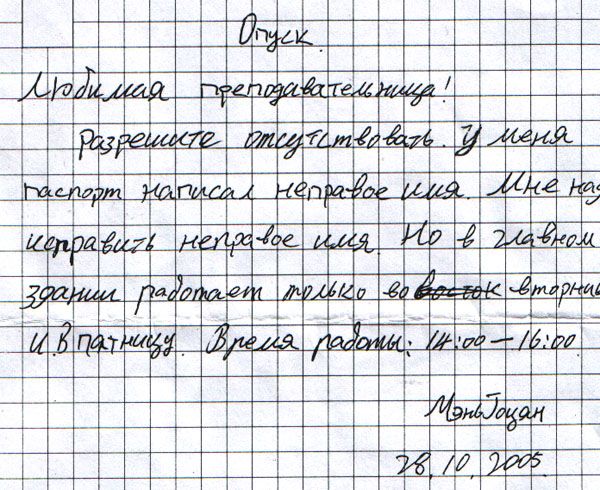 Опуск.
Любимая преподавательница!
Разрешите отсутствовать. У меня
паспорт написал неправое имя. Мне над
исправить неправое имя. Но в главном
здании работает только во восток вторник
и в патницу. Время работы: 14:00 — 16:00
Мэнь Гоцян
28.10.2005